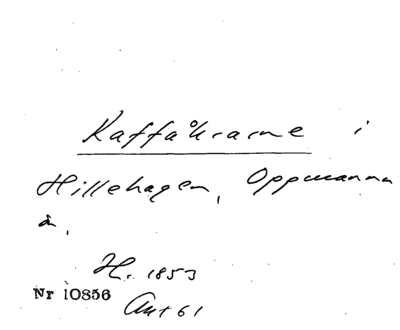 Kaffåkrarne i
Hillehagen, Oppmanna
Å.
H. 1853
Nr 10856
Ant 61